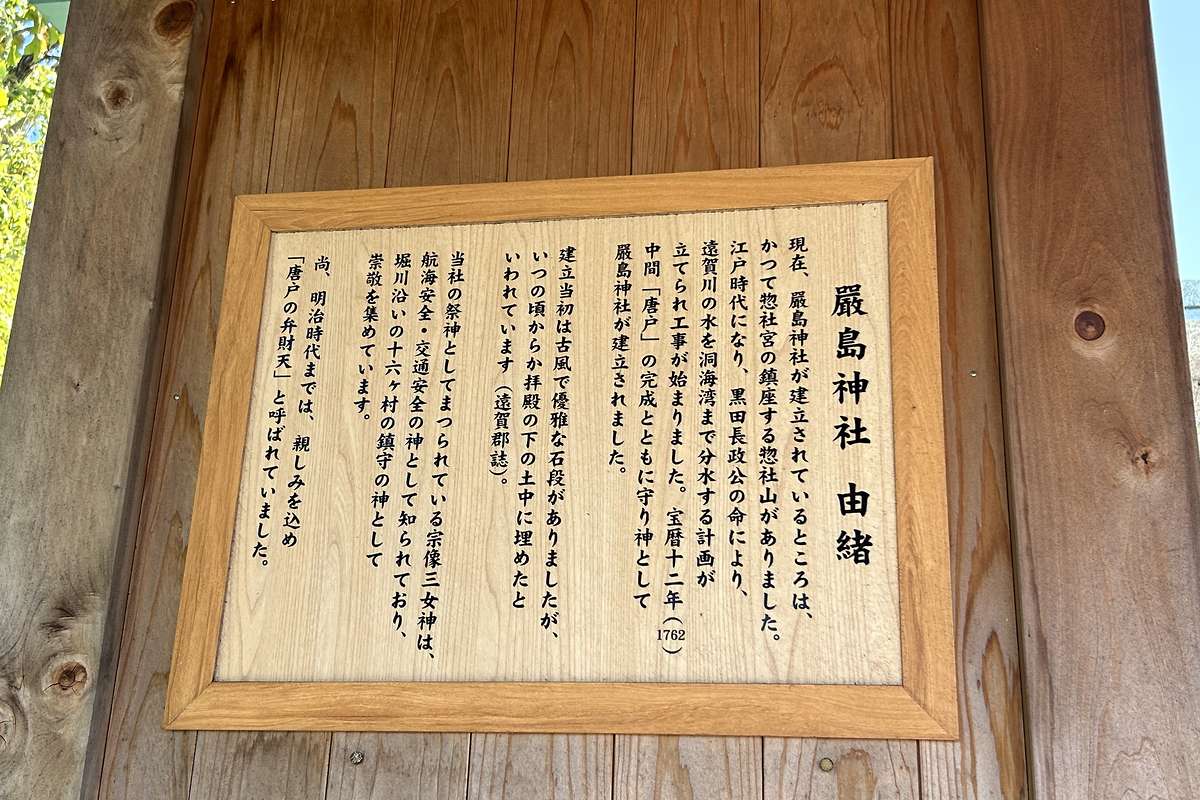 嚴島神社 由緒
現在、嚴島神社が建立されているところは、
かつて惣社宮の鎮座する惣社山がありました。
江戸時代になり、黒田長政公の命により、
遠賀川の水を洞海湾まで分水する計画が
立てられ工事が始まりました。宝暦十二年(1762)
中間「唐戸」の完成とともに守り神として
嚴島神社が建立されました。
建立当初は古風で優雅な石段がありましたが、
いつの頃からか拝殿の下の土中に埋めたと
いわれています(遠賀郡誌)。
当社の祭神としてまつられている宗像三女神は、
航海安全・交通安全の神として知られており、
堀川沿いの十六ヶ村の鎮守の神として
崇敬を集めています。
尚、明治時代までは、親しみを込め
「唐戸の弁財天」と呼ばれていました。